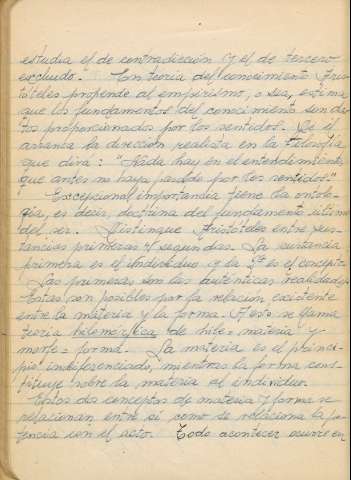 estudia el de contradicción y el de tercero
excluido. En teoría del conocimiento Aris-
tóteles propende al empirismo, o sea, estima
que los fundamentos del conocimiento son da-
tos proporcionados por los sentidos. De él
arranca la dirección realista en la Filosofía
que dirá: "Nada hay en el entendimiento,
que antes no haya pasado por los sentidos"
Excepcional importancia tiene la ontolo-
gía, es decir, doctrina del fundamento último
del ser. Distingue Aristóteles entre sus-
tancias primeras y segundas. La sustancia
primera es el individuo y la 2ª es el concepto.
Las primeras son las auténticas realidades.
Estas son posibles por la relación existente
entre la materia y la forma. A esto se llama
teoría hilemórfica de hile = materia y
morfe = forma. La materia es el princi-
pio indiferenciado, mientras la forma cons-
tituye sobre la materia al individuo.
Estos dos conceptos de materia y forma se
relacionan entre sí como se relaciona la po-
tencia con el acto. Todo acontecer ocurre en